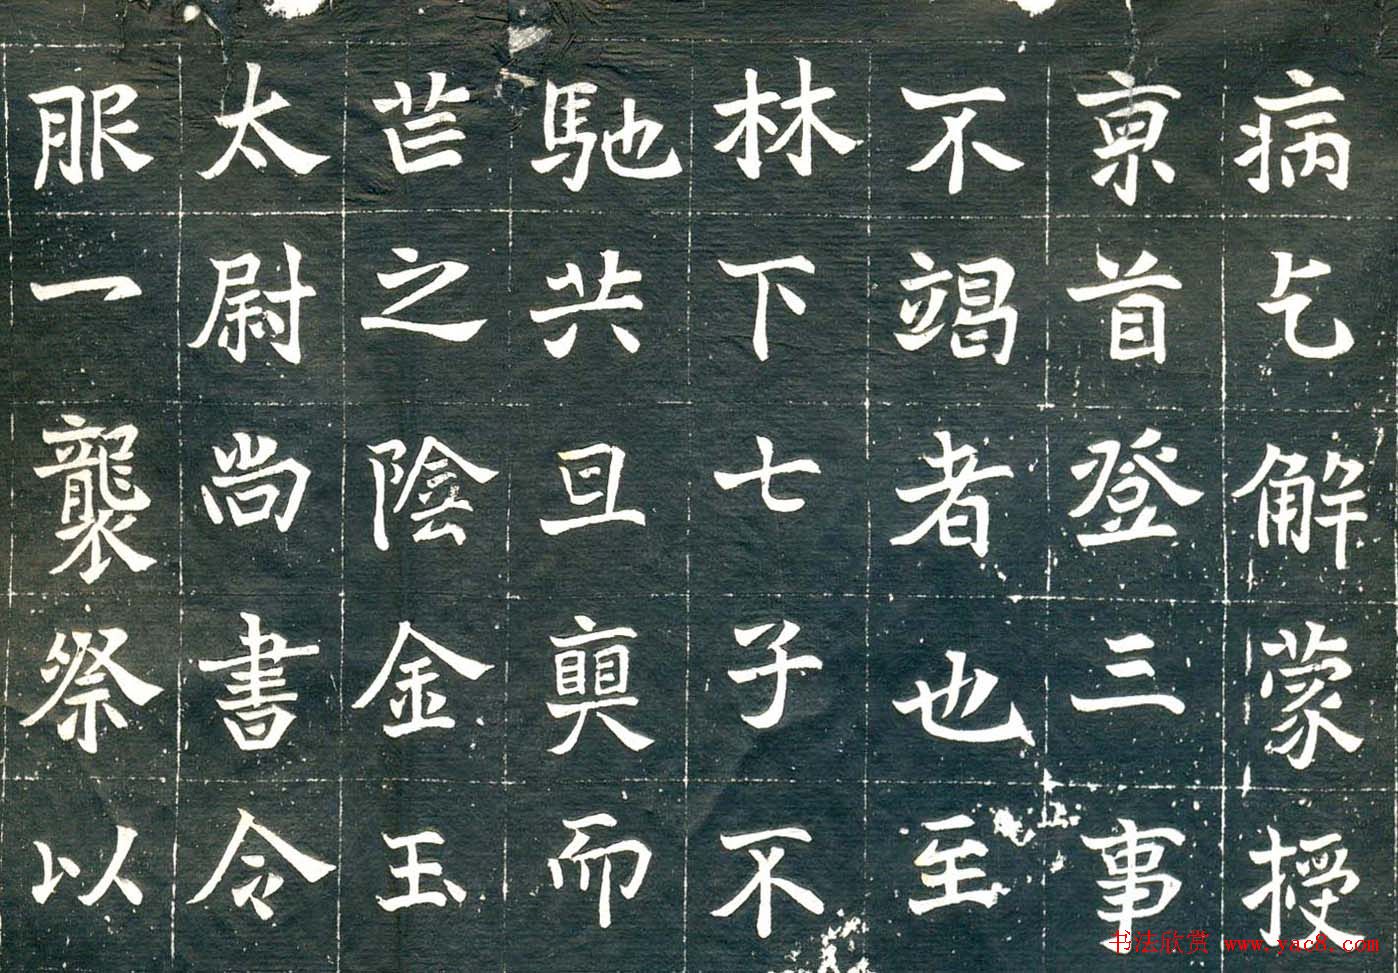 病乞解蒙授
亰首登三事
不竭者也至
林下七子不
馳共旦而
芒之陰金玉
太尉尚書令
服一襲祭以
书法欣赏 www.yac8.com